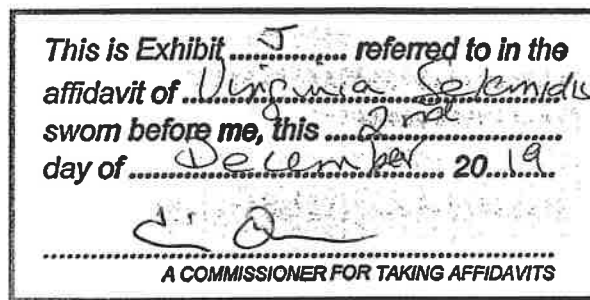 This is Exhibit J referred to in the
affidavit of Virginia
sworn before me, this 2nd
day of December 2019
A COMMISSIONER FOR TAKING AFFIDAVITS